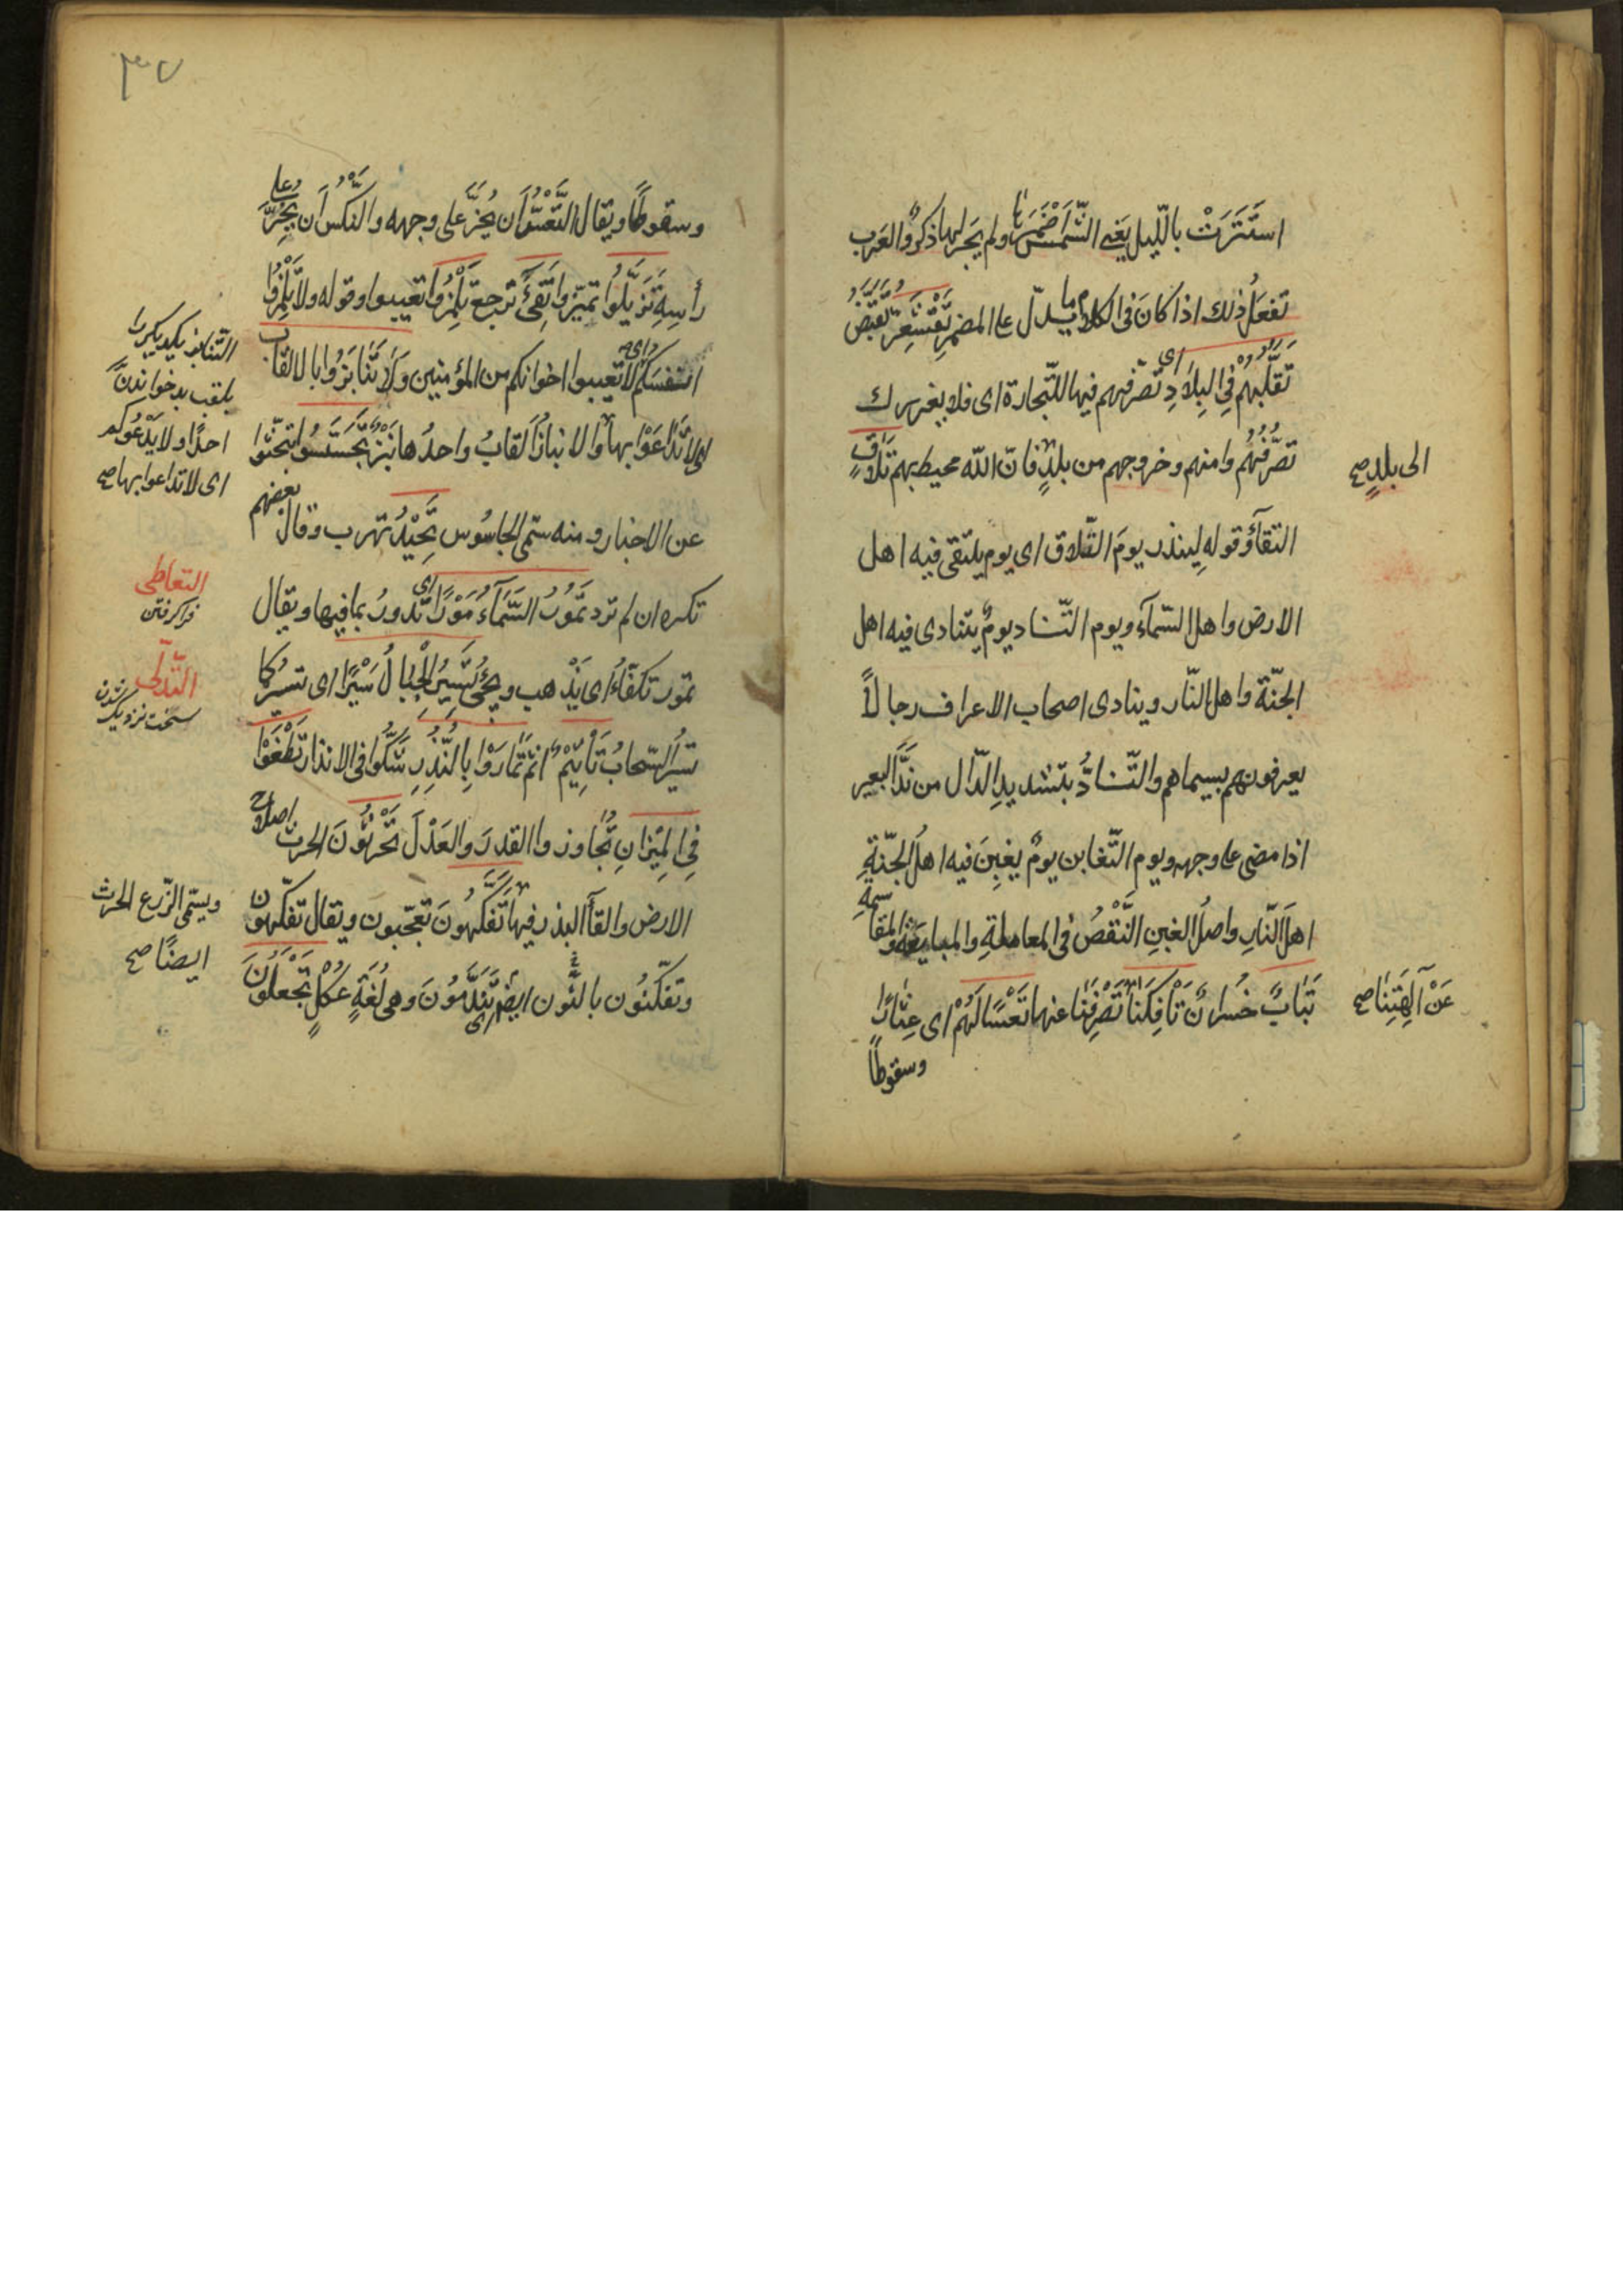 استترت بالليل يعني الشمس اضمرها ولم يجر لها ذكر والعرب
تفعل ذلك اذا كان في الكلام ما يدل على المضمر تقشعر تقبض
تقلبهم في البلاد اي تصرفهم فيها للتجارة اي فلا يغررك
تصرفهم وامنهم وخروجهم من بلد فان الله محيط بهم تلاق
الى بلد صح
التقآؤ قوله لينذر يوم التلاق اي يوم يلتقى فيه اهل
الارض واهل السمآء ويوم التناد يوم يتنادى فيه اهل
الجنة واهل النار وينادى اصحاب الاعراف رجالا
يعرفونهم بسيماهم والتناد بتشديد الدال من ند البعير
اذا مضى على وجهه ويوم التغابن يوم يغبن فيه اهل الجنة
اهل النار واصل الغبن النقص في المعاملة والمبايعة والمقاسمة
تباب خسران تأفكنا تصرفنا عنها تعسا لهم اي عثارا
عن آلهتنا صح
وسقوطا
٣٧
وسقوطا ويقال التعس ان يخر على وجهه والنكس ان يخر على
رأسه تزيلوا تميزوا تفئ ترجع تلمزوا تعيبوا وقوله ولا تلمزوا
انفسكم اي لا تعيبوا اخوانكم من المؤمنين ولا تنابزوا بالالقاب
اي لا تداعوا بها والانباز القاب واحدها نبز تجسسوا تبحثوا
عن الاخبار ومنه سمى الجاسوس تحيد تهرب وقال بعضهم
تكره ان لم ترد تمور السمآء مورا اي تدور بما فيها ويقال
تمور تكفأ اي يذهب ويجئ تسير الجبال سيرا اي تسير كما
تسير السحاب تأثيم اثم تماروا بالنذر شكوا في الانذار تطغوا
في الميزان تجاوزوا القدر والعدل تحرثون الحرث اصلاح
الارض والقآ البذر فيها تفكهون تعجبون ويقال تفكهون
وتفكنون بالنون ايضا اي تندمون وهي لغة عكل تجعلون
التنابز يكديكر را
بلقب بد خواندن
احدا ولا يدعوكم
اي لا تداعوا بها صح
التعاطي
فراكرفتن
التدلى
سخت نزديك شدن
ويسمى الزرع الحرث
ايضا صح